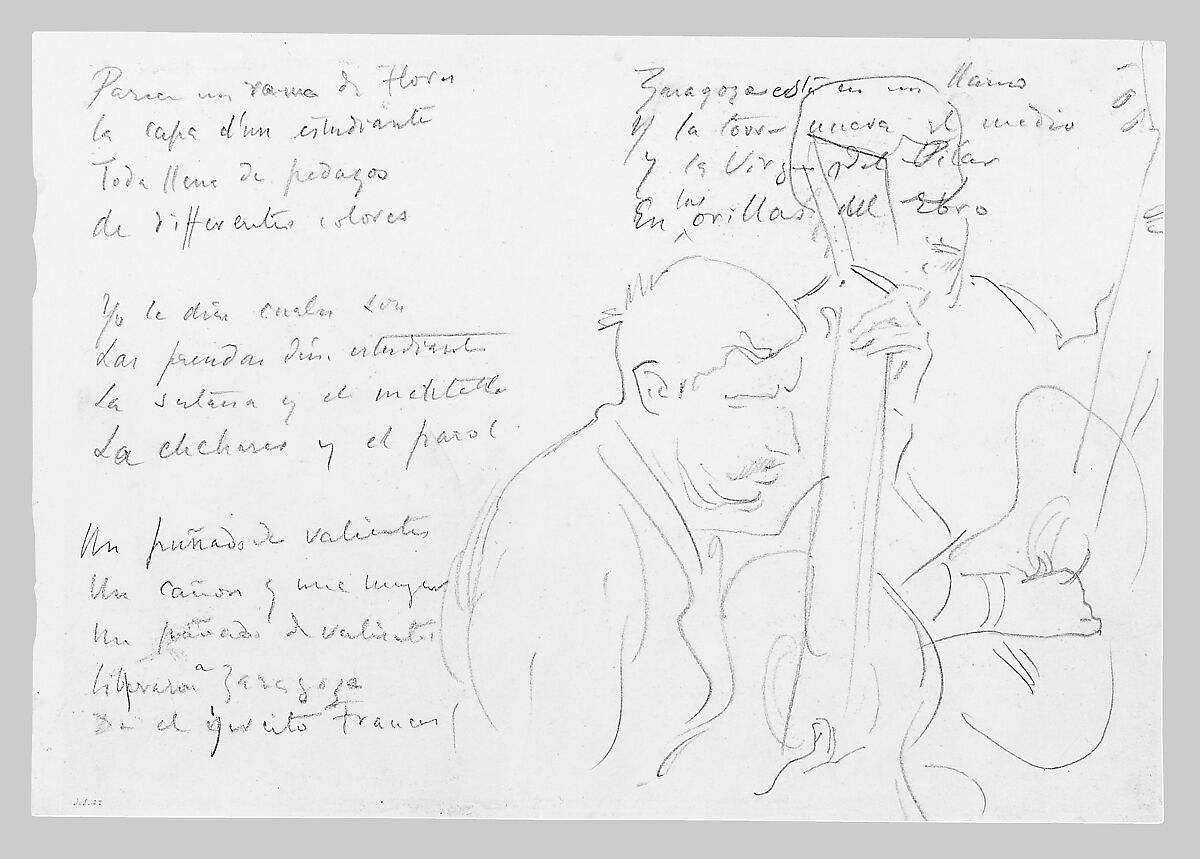 Parece un ramo de Flores
la capa d'un estudiante
Toda llena de pedazos
de differentes colores
Yo le dire cuales son
Las prendas d'un estudiante
La sotana y el
La chchara y el farol
Un puñado de valientes
Un cañon y una muger
Un puñado de valientes
liberaron a Zaragoza
De el ejercito Frances
Zaragoza está en un llano
Y la torre nueva al medio
y la Virgen del Pilar
En las orillas del Ebro
J.S. 22